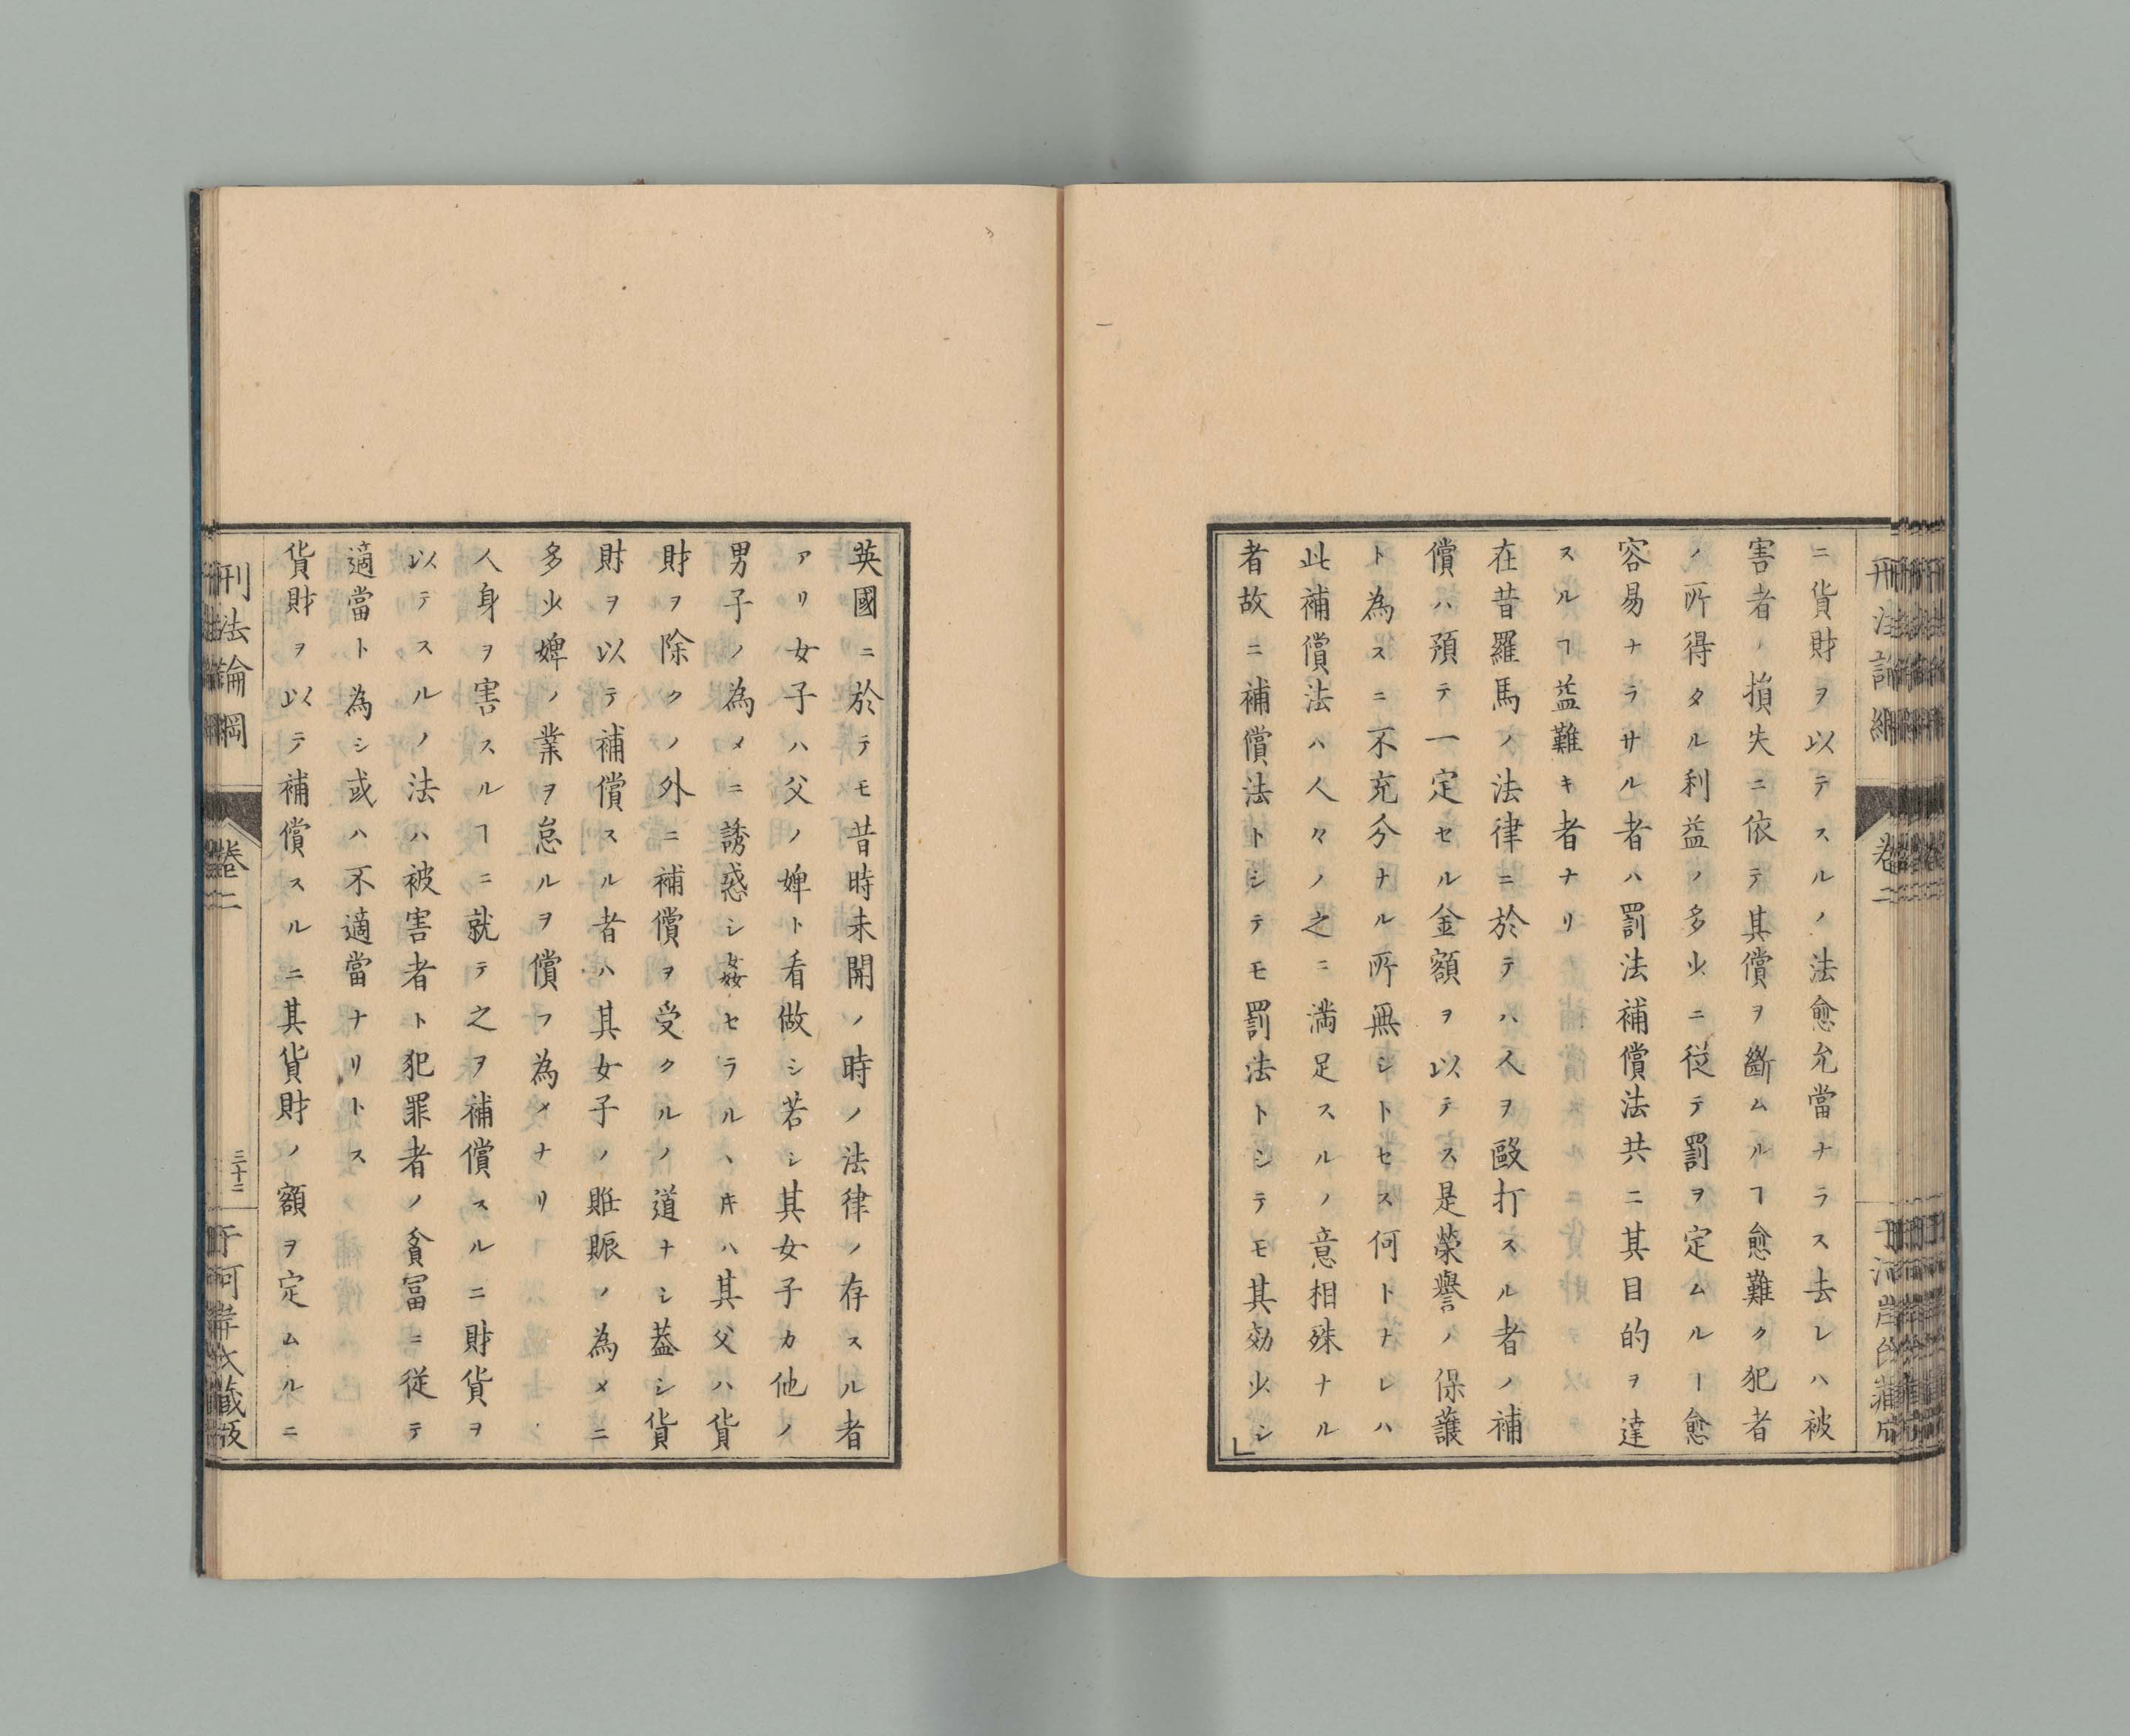 ニ貨財ヲ以テスルノ法愈允當ナラス去レハ被
害者ノ損失ニ依テ其償ヲ斷ムルヿ愈難ク犯者
ノ所得タル利益ノ多少ニ従テ罰ヲ定ムルー愈
容易ナラサル者ハ罰法補償法共ニ其目的ヲ達
スルヿ益難キ者ナリ
在昔羅馬ノ法律ニ於テハ人ヲ毆打スル者ノ補
償ハ預テ一定セル金額ヲ以テス是榮譽ノ保護
ト為スニ不充分ナル所無シトセス何トナレハ
此補償法ハ人々ノ之ニ満足スルノ意相殊ナル
者故ニ補償法トシテモ罰法トシテモ其効少シ
英國ニ於テモ昔時未開ノ時ノ法律ノ存スル者
アリ女子ハ父ノ婢ト看做シ若シ其女子カ他ノ
男子ノ為メニ誘惑シ姦セラルヽキハ其父ハ貨
財ヲ除クノ外ニ補償ヲ受クルノ道ナシ蓋シ貨
財ヲ以テ補償スル者ハ其女子ノ賑ノ為メニ
多少婢ノ業ヲ怠ルヲ償フ為メナリ
人身ヲ害スルヿニ就テ之ヲ補償スルニ財貨ヲ
以テスルノ法ハ被害者ト犯罪者ノ貧冨ニ従テ
適當ト為シ或ハ不適當ナリトス
貨財ヲ以テ補償スルニ其貨財ノ額ヲ定ムルニ
刑法論綱
卷二
三十二
于河岸氏藏版